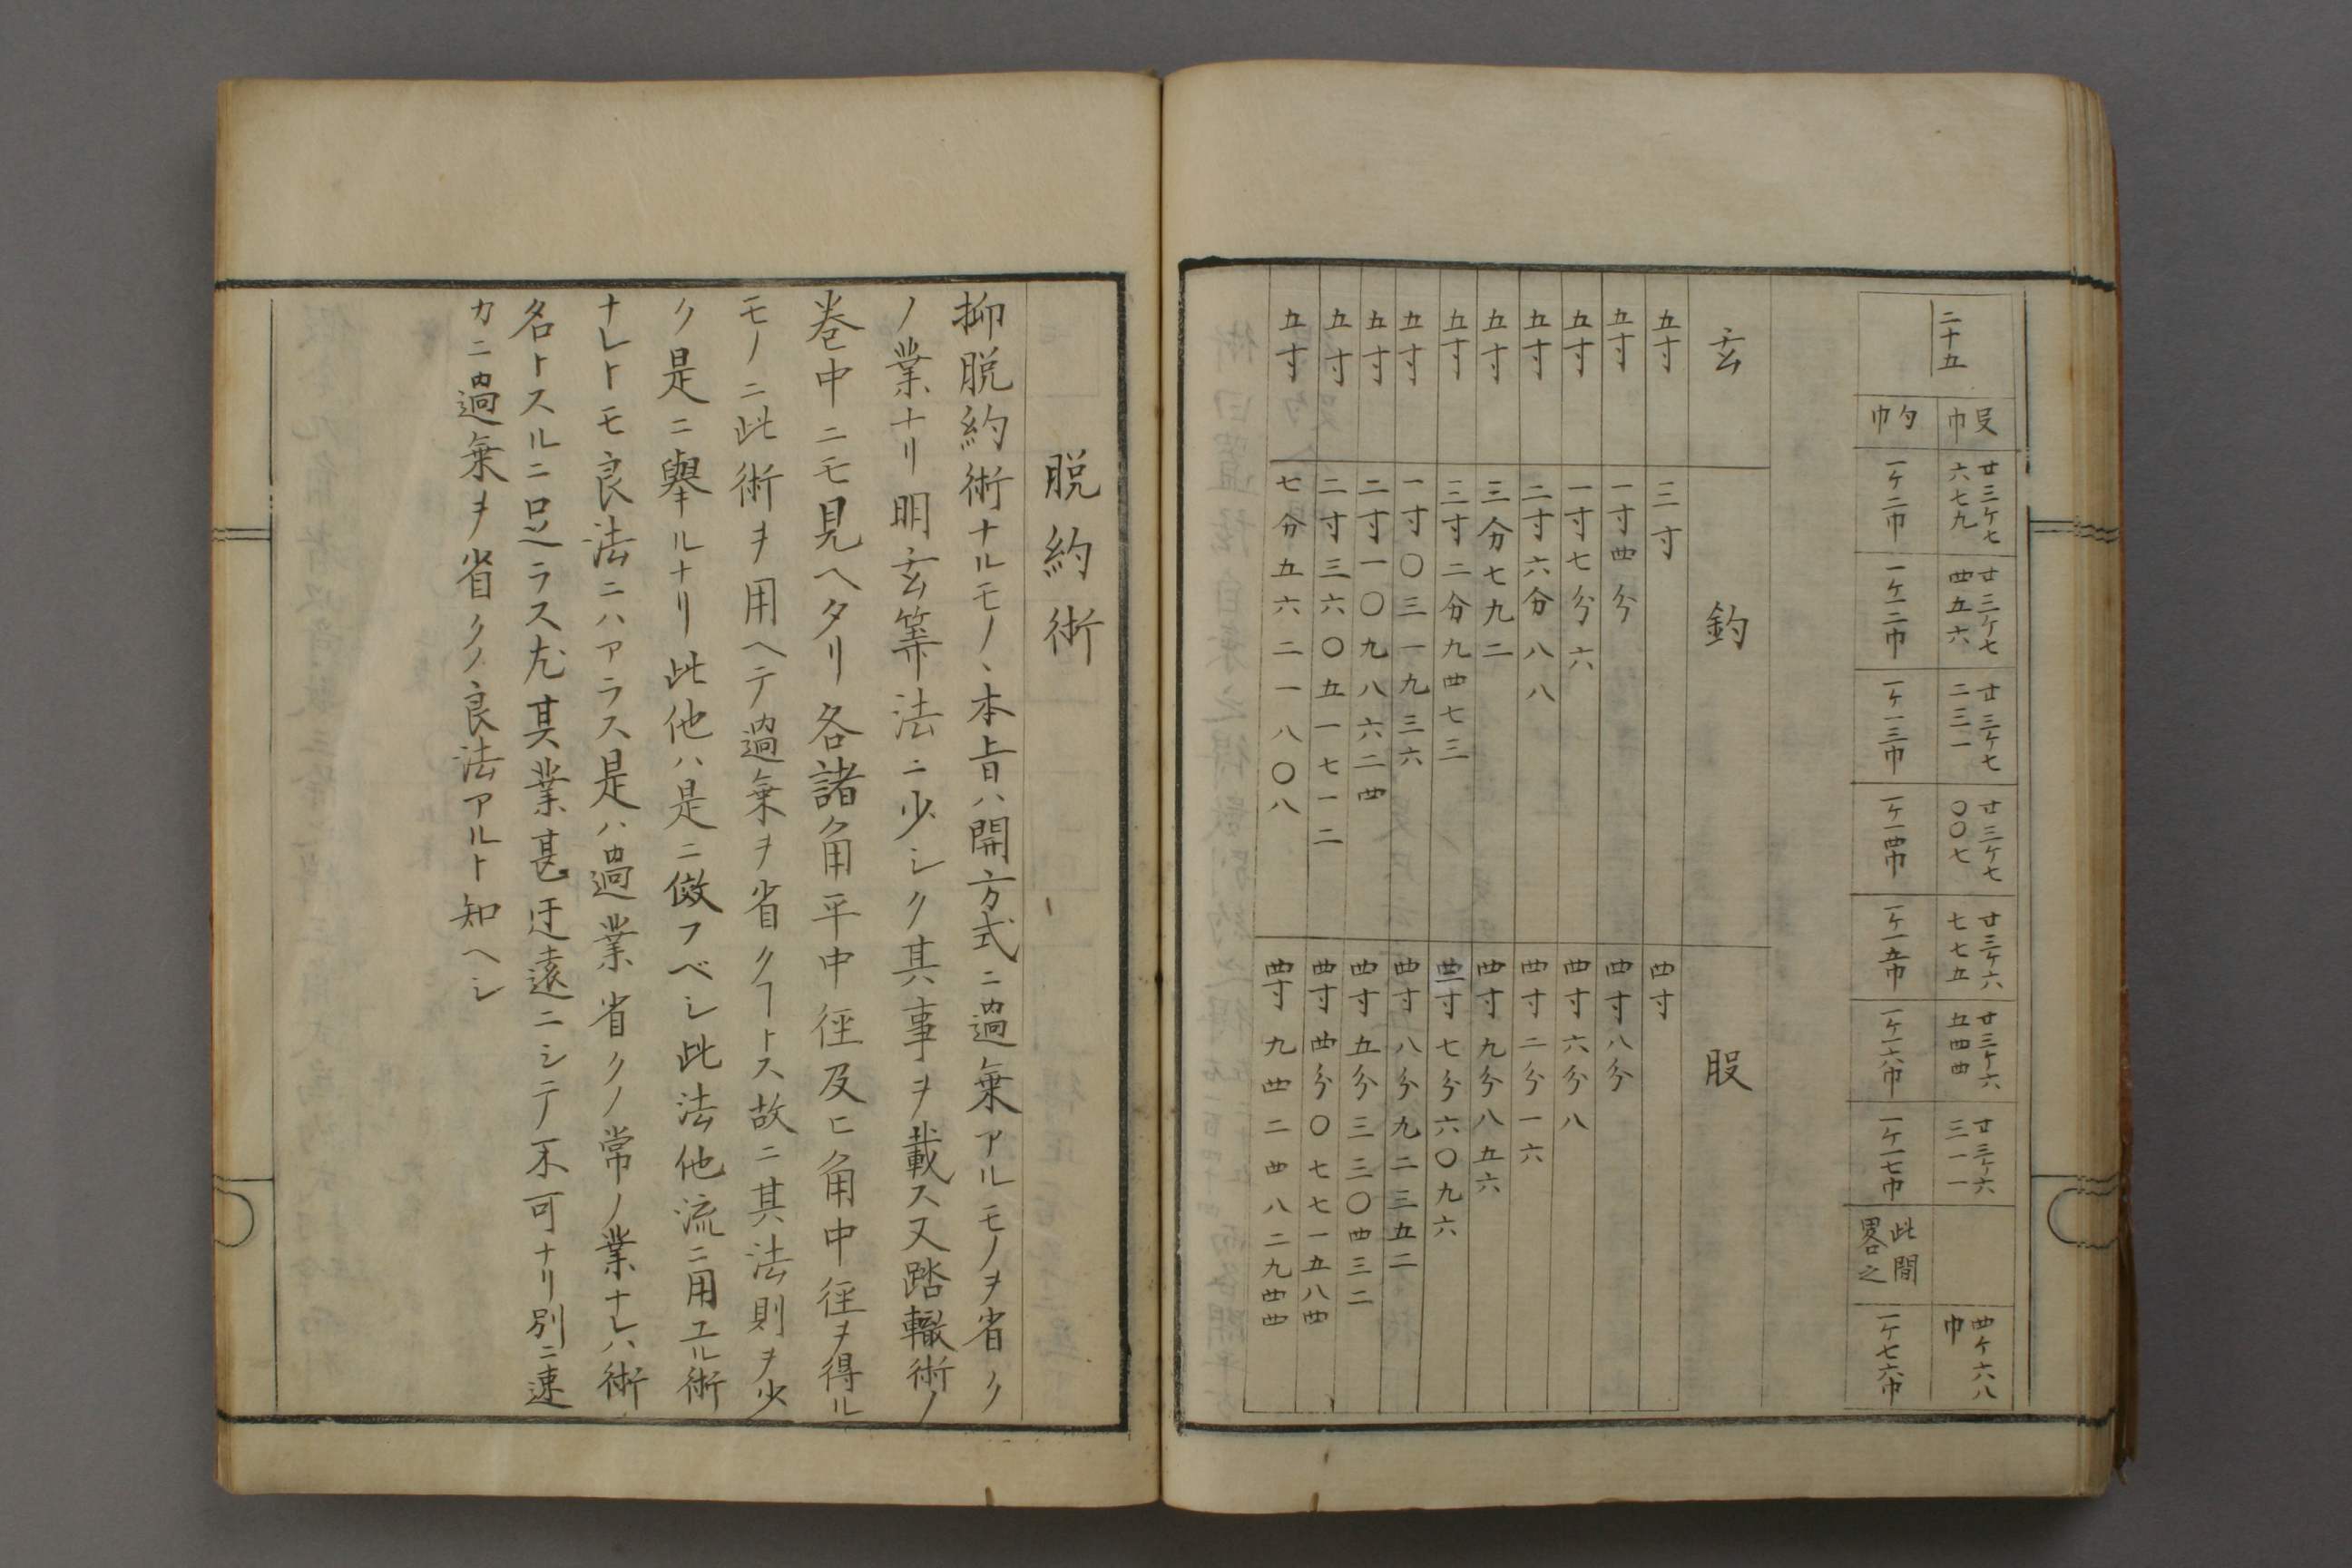 二十五
殳巾 廿三ケ七六七九 廿三ケ七四五六 廿三ケ七二三一 廿三ケ七〇〇七 廿三ケ六七七五 廿三ケ六五四四 廿三ケ六三一一 四ケ六八巾
勺巾 一ケ一一巾 一ケ一二巾 一ケ一三巾 一ケ一四巾 一ケ一五巾 一ケ一六巾 一ケ一七巾 此間畧之 一ケ七六巾
玄 釣 股
五寸 三寸 四寸
五寸 一寸四分 四寸八分
五寸 一寸七分六 四寸六分八
五寸 二寸六分八八 四寸二分一六
五寸 三分七九二 四寸九分八五六
五寸 三寸二分九四七三 三寸七分六〇九六
五寸 一寸〇三一九三六 四寸八分九二三五二
五寸 二寸一〇九八六二四 四寸五分三三〇四三二
五寸 二寸三六〇五一七一二 四寸四分〇七七一五八四
五寸 七分五六二一八〇八 四寸九四二四八二九四四
脱約術
抑脱約術ナルモノヽ本旨ハ開方式ニ過乗アルモノヲ省ク
ノ業ナリ明玄筭法ニ少シク其事ヲ載ス又踏轍術ノ
巻中ニモ見ヘタリ各諸角平中徑及ヒ角中徑ヲ得ル
モノニ此術ヲ用ヘテ過乗ヲ省クヿトス故ニ其法則ヲ少
ク是ニ舉ルナリ此他ハ是ニ傚フベシ此法他流ニ用エル術
ナレトモ良法ニハアラス是ハ過業省クノ常ノ業ナレハ術
名トスルニ足ラス尤其業甚迂遠ニシテ不可ナリ別ニ速
カニ過乗ヲ省クノ良法アルト知ヘシ